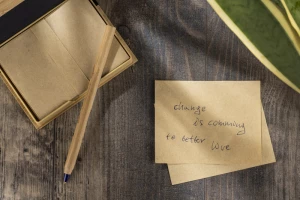 change
is comming
to better live